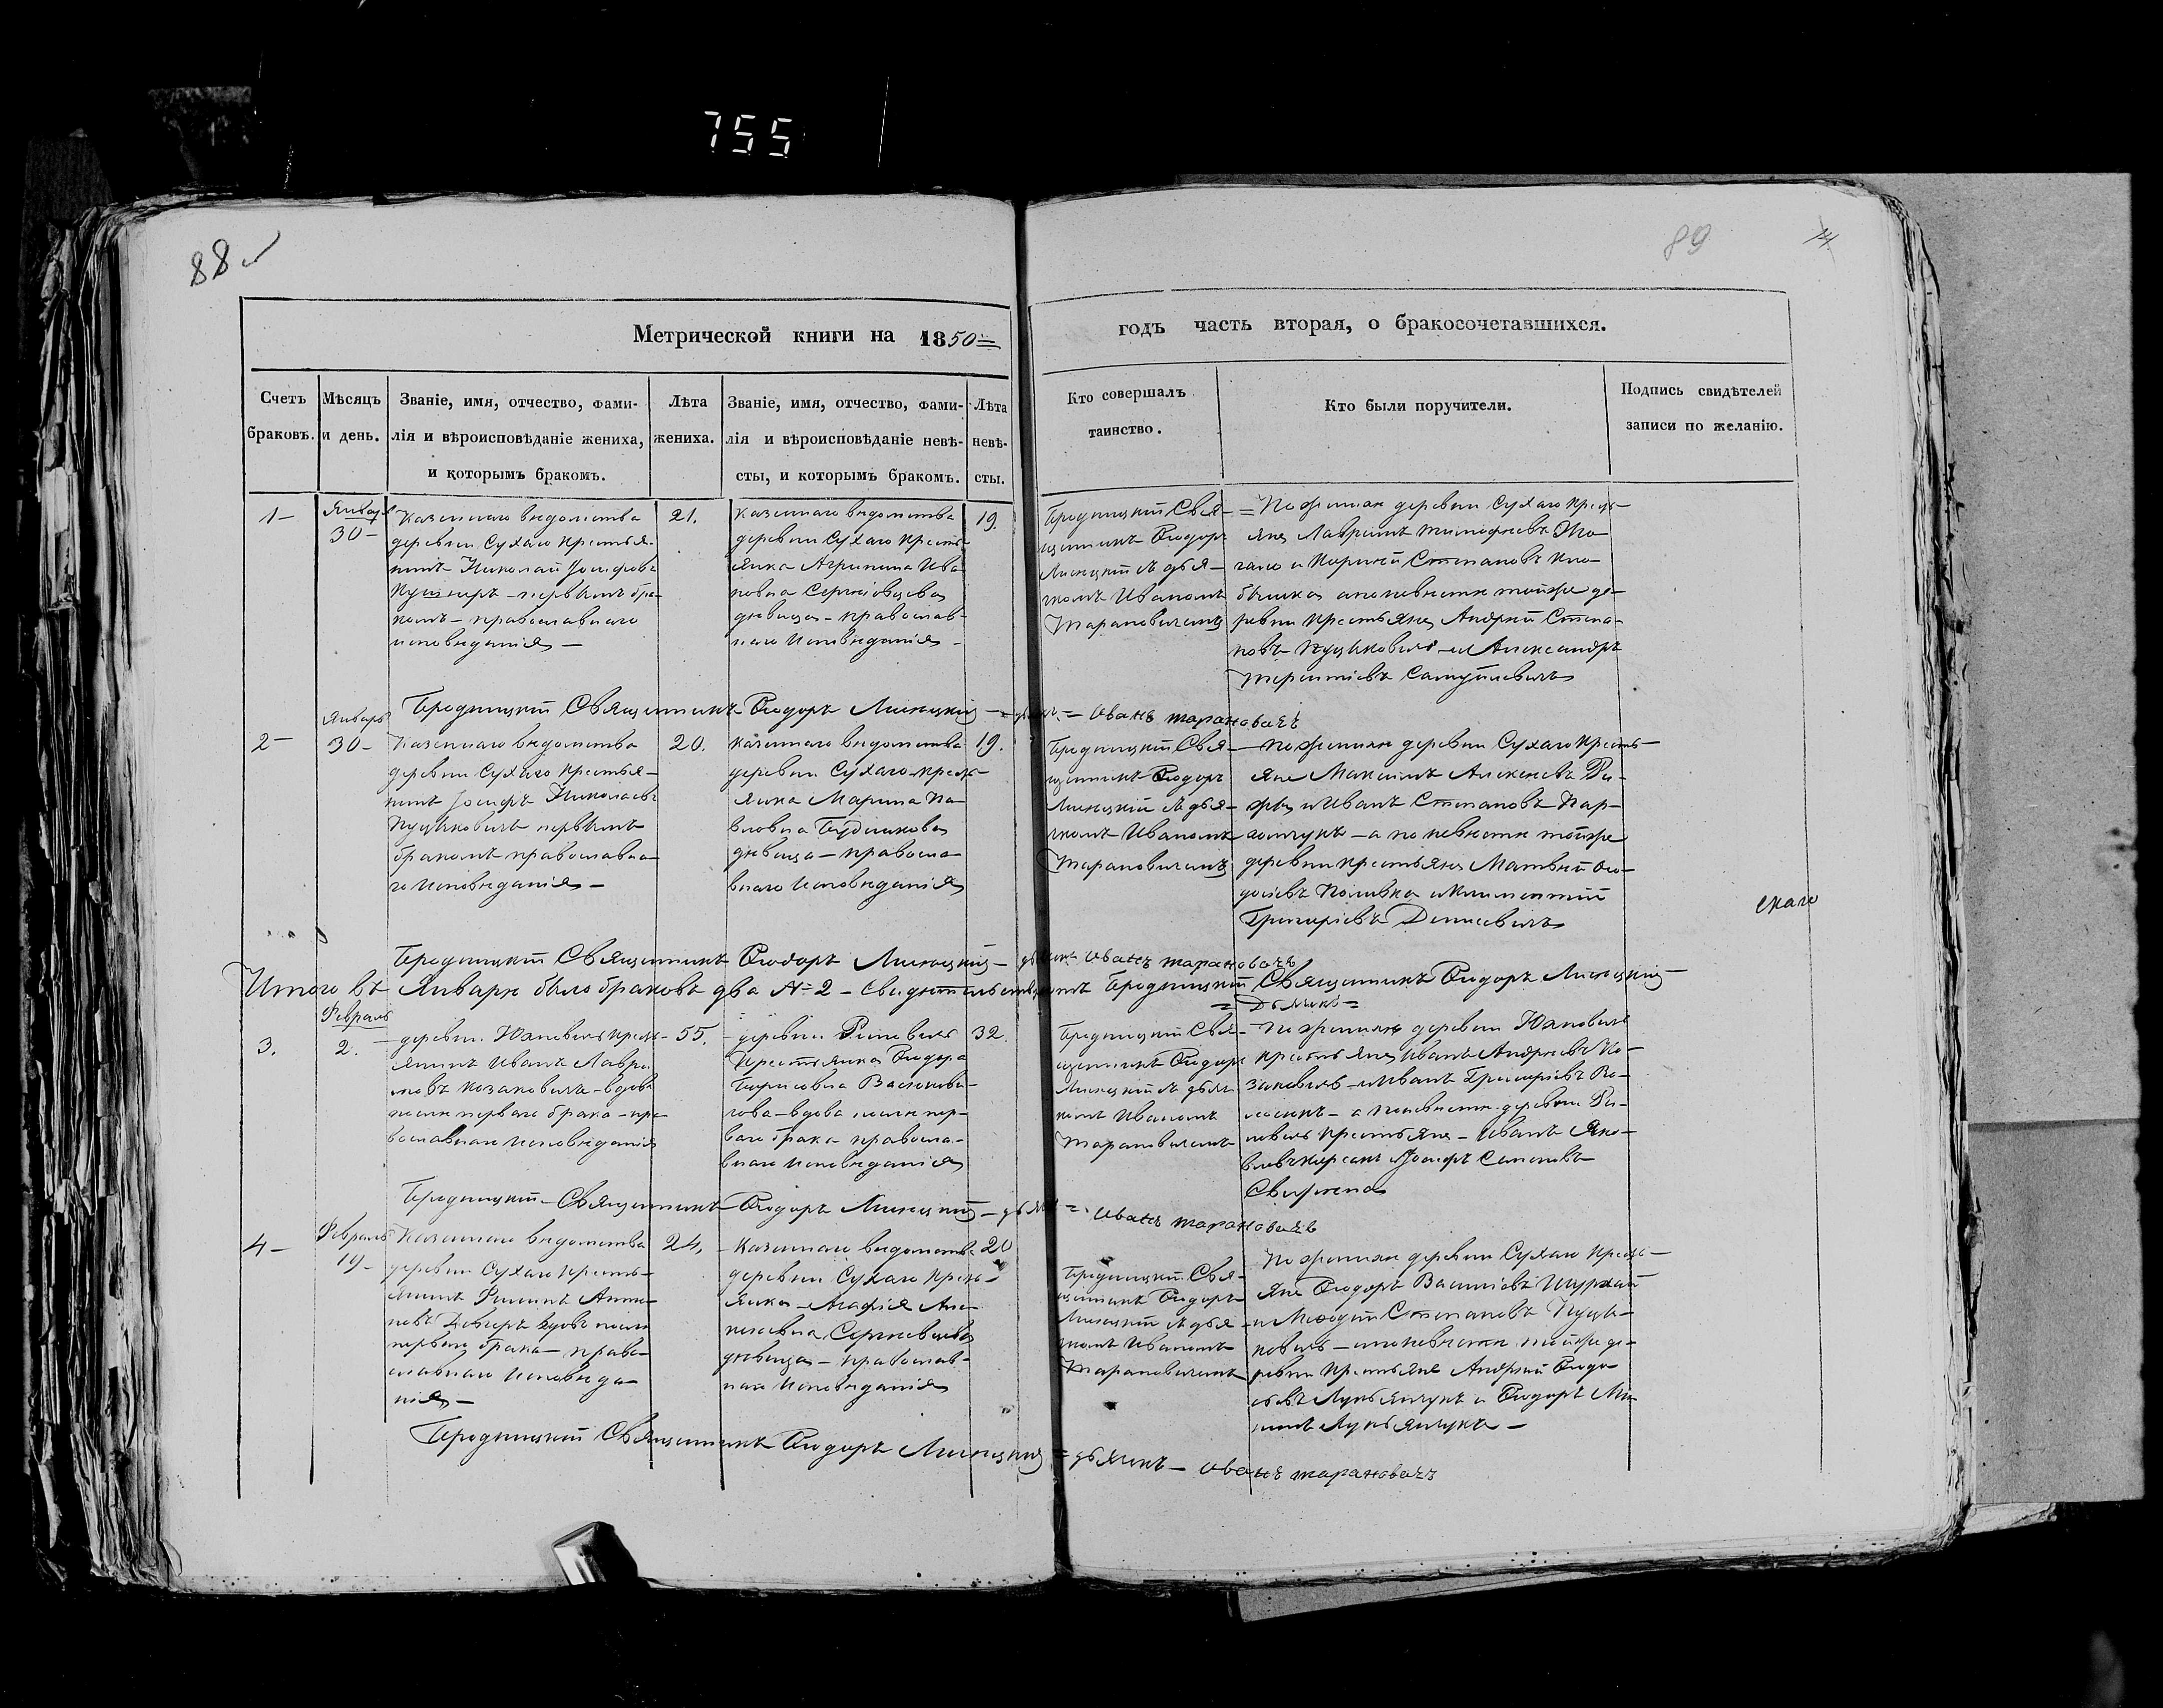 755
88
89
14
Метрической книги на 1850=
годъ часть вторая, о бракосочетавшихся.
Счетъ
браковъ.
Мѣсяцъ
и день.
Званіе, имя, отчество, фами-
лія и вѣроисповѣданіе жениха,
и которымъ бракомъ.
Лѣта
жениха.
Званіе, имя, отчество, фами-
лія и вѣроисповѣданіе невѣ-
сты, и которымъ бракомъ.
Лѣта
невѣ-
сты.
Кто совершалъ
таинство.
Кто были поручители.
Подпись свидѣтелей
записи по желанію.
1-
Январь
30-
Казеннаго вѣдомства
деревни Сухаго крестья-
нинъ Николай Іосифовъ
Кушнеръ - первымъ бра-
комъ - православнаго
исповѣданія -
21.
Казеннаго вѣдомства
деревни Сухаго кресть-
янка Агрипина Ива
новна Сергіовцева
дѣвица - православ-
наго исповѣданія -
19.
Бродницкій Свя-
щенникъ Ѳеодоръ
Линецкій съ дья-
комъ Иваномъ
Тарановичемъ
= По женихѣ деревни Сухаго кресть-
яне Лаврентъ Тимофеевъ
и Степановъ
а по невѣстѣ тойже де-
ревни крестьяне Андрей Степа-
новъ Пуцьковичъ и Александръ
Терентіевъ Самуйлевичъ
Бродницкій Священникъ Ѳеодоръ Линецкій - дьякъ - Иванъ Тарановичъ
2-
Январь
30-
Казеннаго вѣдомства
деревни Сухаго крестья-
нинъ Іосифъ Николаевъ
Пуцьковичъ первымъ
бракомъ православна-
го исповѣданія -
20.
Казеннаго вѣдомства
деревни Сухаго кресть-
янка Марина Па
вловна Будникова
дѣвица - правосла
внаго исповѣданія
19.
Бродницкій Свя-
щенникъ Ѳеодоръ
Линецкій съ дья-
комъ Иваномъ
Тарановичемъ
- по женихѣ деревни Сухаго кресть-
яне Максимъ Алексѣевъ
и Иванъ Степановъ Пар-
хомчукъ - а по невѣстѣ тойже
деревни крестьяне Матвѣй Ѳео-
досіевъ Поливка и Климентій
Григоріевъ Денисевичъ
скаго
Бродницкій Священникъ Ѳеодоръ Линецкій - дьякъ Иванъ Тарановичъ
Итого въ Январѣ было браковъ два №2 - Свидѣтельствуютъ Бродницкій Священникъ Ѳеодоръ Линецкій -
= Дьякъ =
3.
Февраль
2.
деревни Юхновичъ кресть-
янинъ Иванъ Лаври
новъ Козаковичъ - вдовъ
послѣ перваго брака - пра-
вославнаго исповѣданія
55.
- деревни Риповичъ
Крестьянка Ѳеодора
Борисовна Васюкови-
чова - вдова послѣ пер-
ваго брака правосла-
внаго исповѣданія
32.
Бродницкій Свя-
щенникъ Ѳеодоръ
Линецкій съ дья
комъ Иваномъ
Тарановичемъ
- По женихѣ деревни Юхновичъ
крестьяне Иванъ Андреевъ Ко-
заковичъ - и Иванъ Григоріевъ
- а по невѣстѣ деревни Ри-
повичъ крестьяне - Иванъ Яко-
влевъ и Іосифъ Семеновъ
Бродницкій - Священникъ Ѳеодоръ Линецкій - дьякъ = Иванъ Тарановичъ
4-
Февраль
19-
Казеннаго вѣдомства
деревни Сухаго кресть-
янинъ Филипъ Анто-
новъ вдовъ послѣ
перваго брака - право-
славнаго исповѣда
нія -
24.
- Казеннаго вѣдомства
деревни Сухаго кресть-
янка - Агафія Але-
ксѣевна Сергіевцева
дѣвица - православ-
наго исповѣданія
20
Бродницкій Свя-
щенникъ Ѳеодоръ
Линецкій съ дья-
комъ Иваномъ
Тарановичемъ
По женихѣ деревни Сухаго кресть-
яне Ѳеодоръ Василіовъ Шурхай
и Меѳодій Степановъ Пуць-
ковичъ - а по невѣстѣ тойже де-
ревни крестьяне Андрей Ѳеодо-
сьевъ Лукьянчукъ и Ѳеодоръ
Лукьянчукъ -
Бродницкій Священникъ Ѳеодоръ Линецкій = дьякъ - Иванъ Тарановичъ